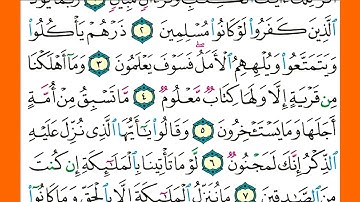 الَّذِينَ كَفَرُوا۟ لَوْ كَانُوا۟ مُسْلِمِينَ ٢ ذَرْهُمْ يَأْكُلُوا۟
وَيَتَمَتَّعُوا۟ وَيُلْهِهِمُ الْأَمَلُ ۖ فَسَوْفَ يَعْلَمُونَ ٣ وَمَآ أَهْلَكْنَا
مِن قَرْيَةٍ إِلَّا وَلَهَا كِتَابٌ مَّعْلُومٌ ٤ مَّا تَسْبِقُ مِنْ أُمَّةٍ
أَجَلَهَا وَمَا يَسْتَـْٔخِرُونَ ٥ وَقَالُوا۟ يَـٰٓأَيُّهَا الَّذِى نُزِّلَ عَلَيْهِ
الذِّكْرُ إِنَّكَ لَمَجْنُونٌ ٦ لَّوْ مَا تَأْتِينَا بِالْمَلَـٰٓئِكَةِ إِن كُنتَ
مِنَ الصَّـٰدِقِينَ ٧ مَا نُنَزِّلُ الْمَلَـٰٓئِكَةَ إِلَّا بِالْحَقِّ وَمَا كَانُوٓا۟